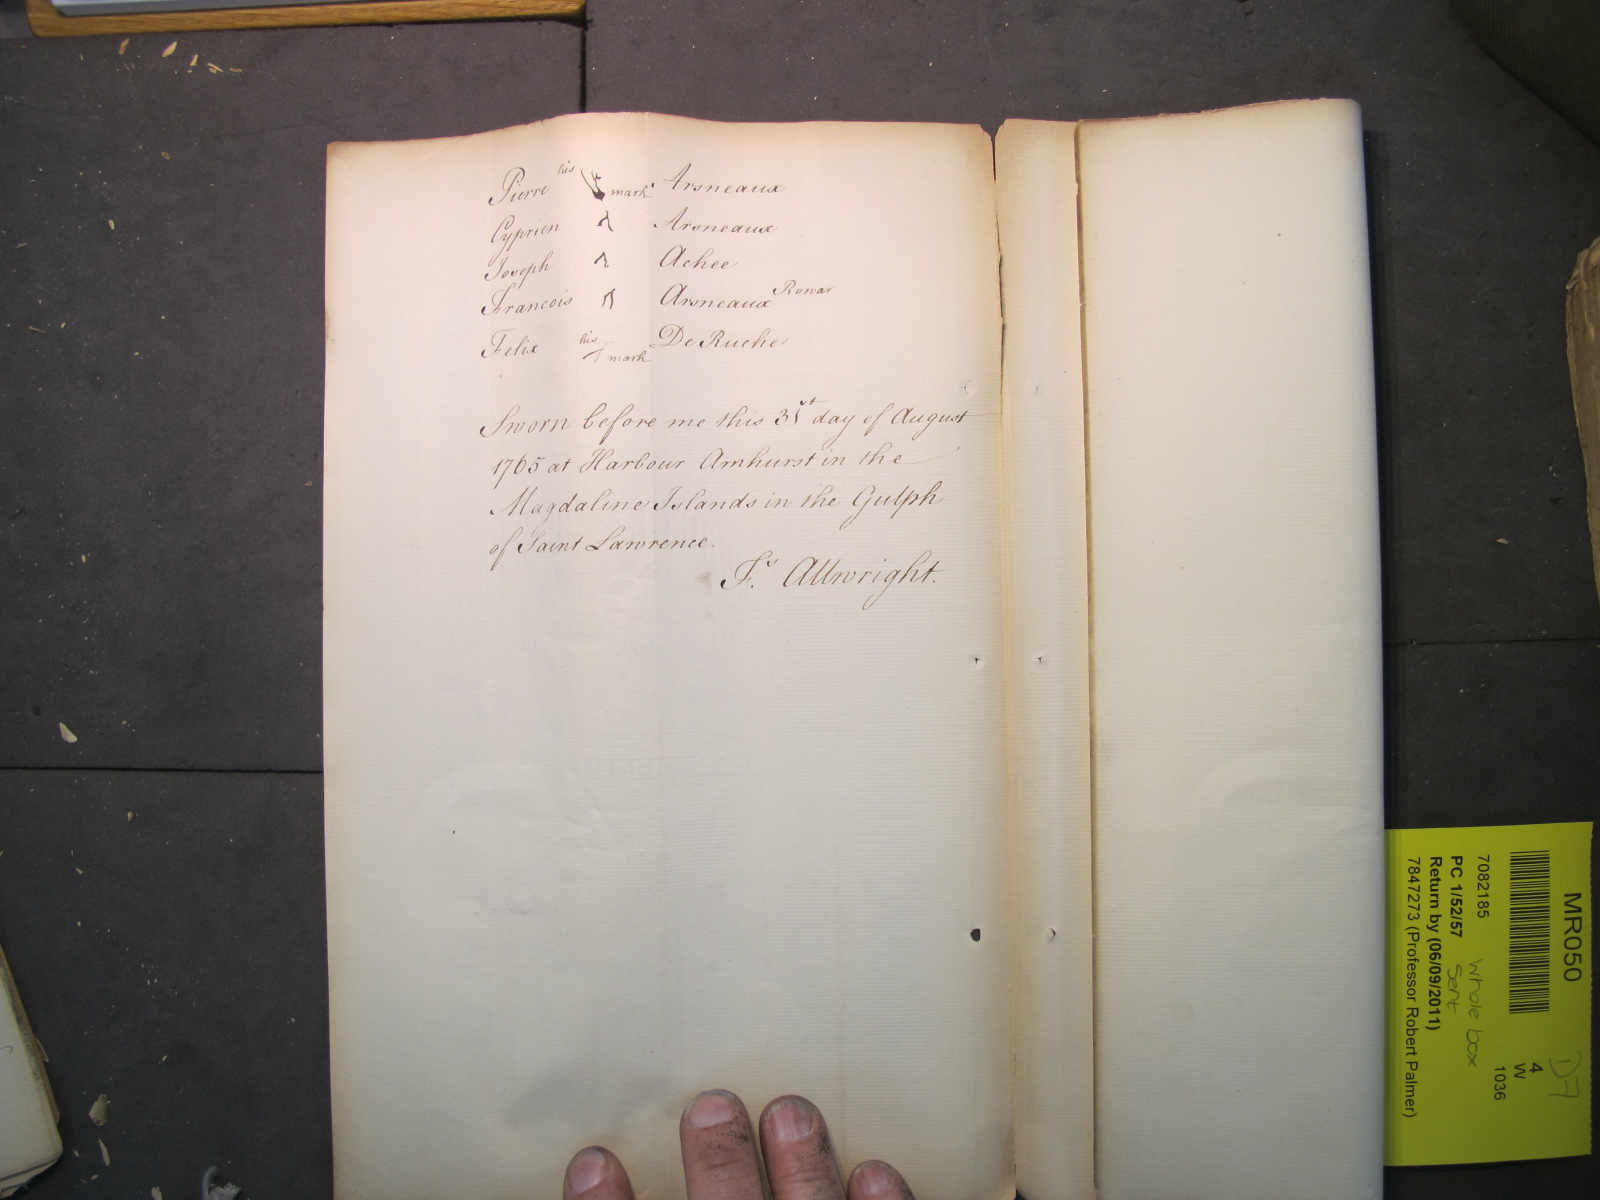 Pierre his mark Arsneaux
Cyprien Arsneaux
Joseph Achee
Francois Arsneaux Rowar
Felix his mark De Ruche
Sworn before me this 31st day of August
1765 at Harbour Amhurst in the
Magdaline Islands in the Gulph
of Saint Lawrence.
Fs. Allwright.
MR050
D7
4
W
1036
7082185
Whole box
PC 1/52/57
Sent
Return by (06/09/2011)
7847273 (Professor Robert Palmer)